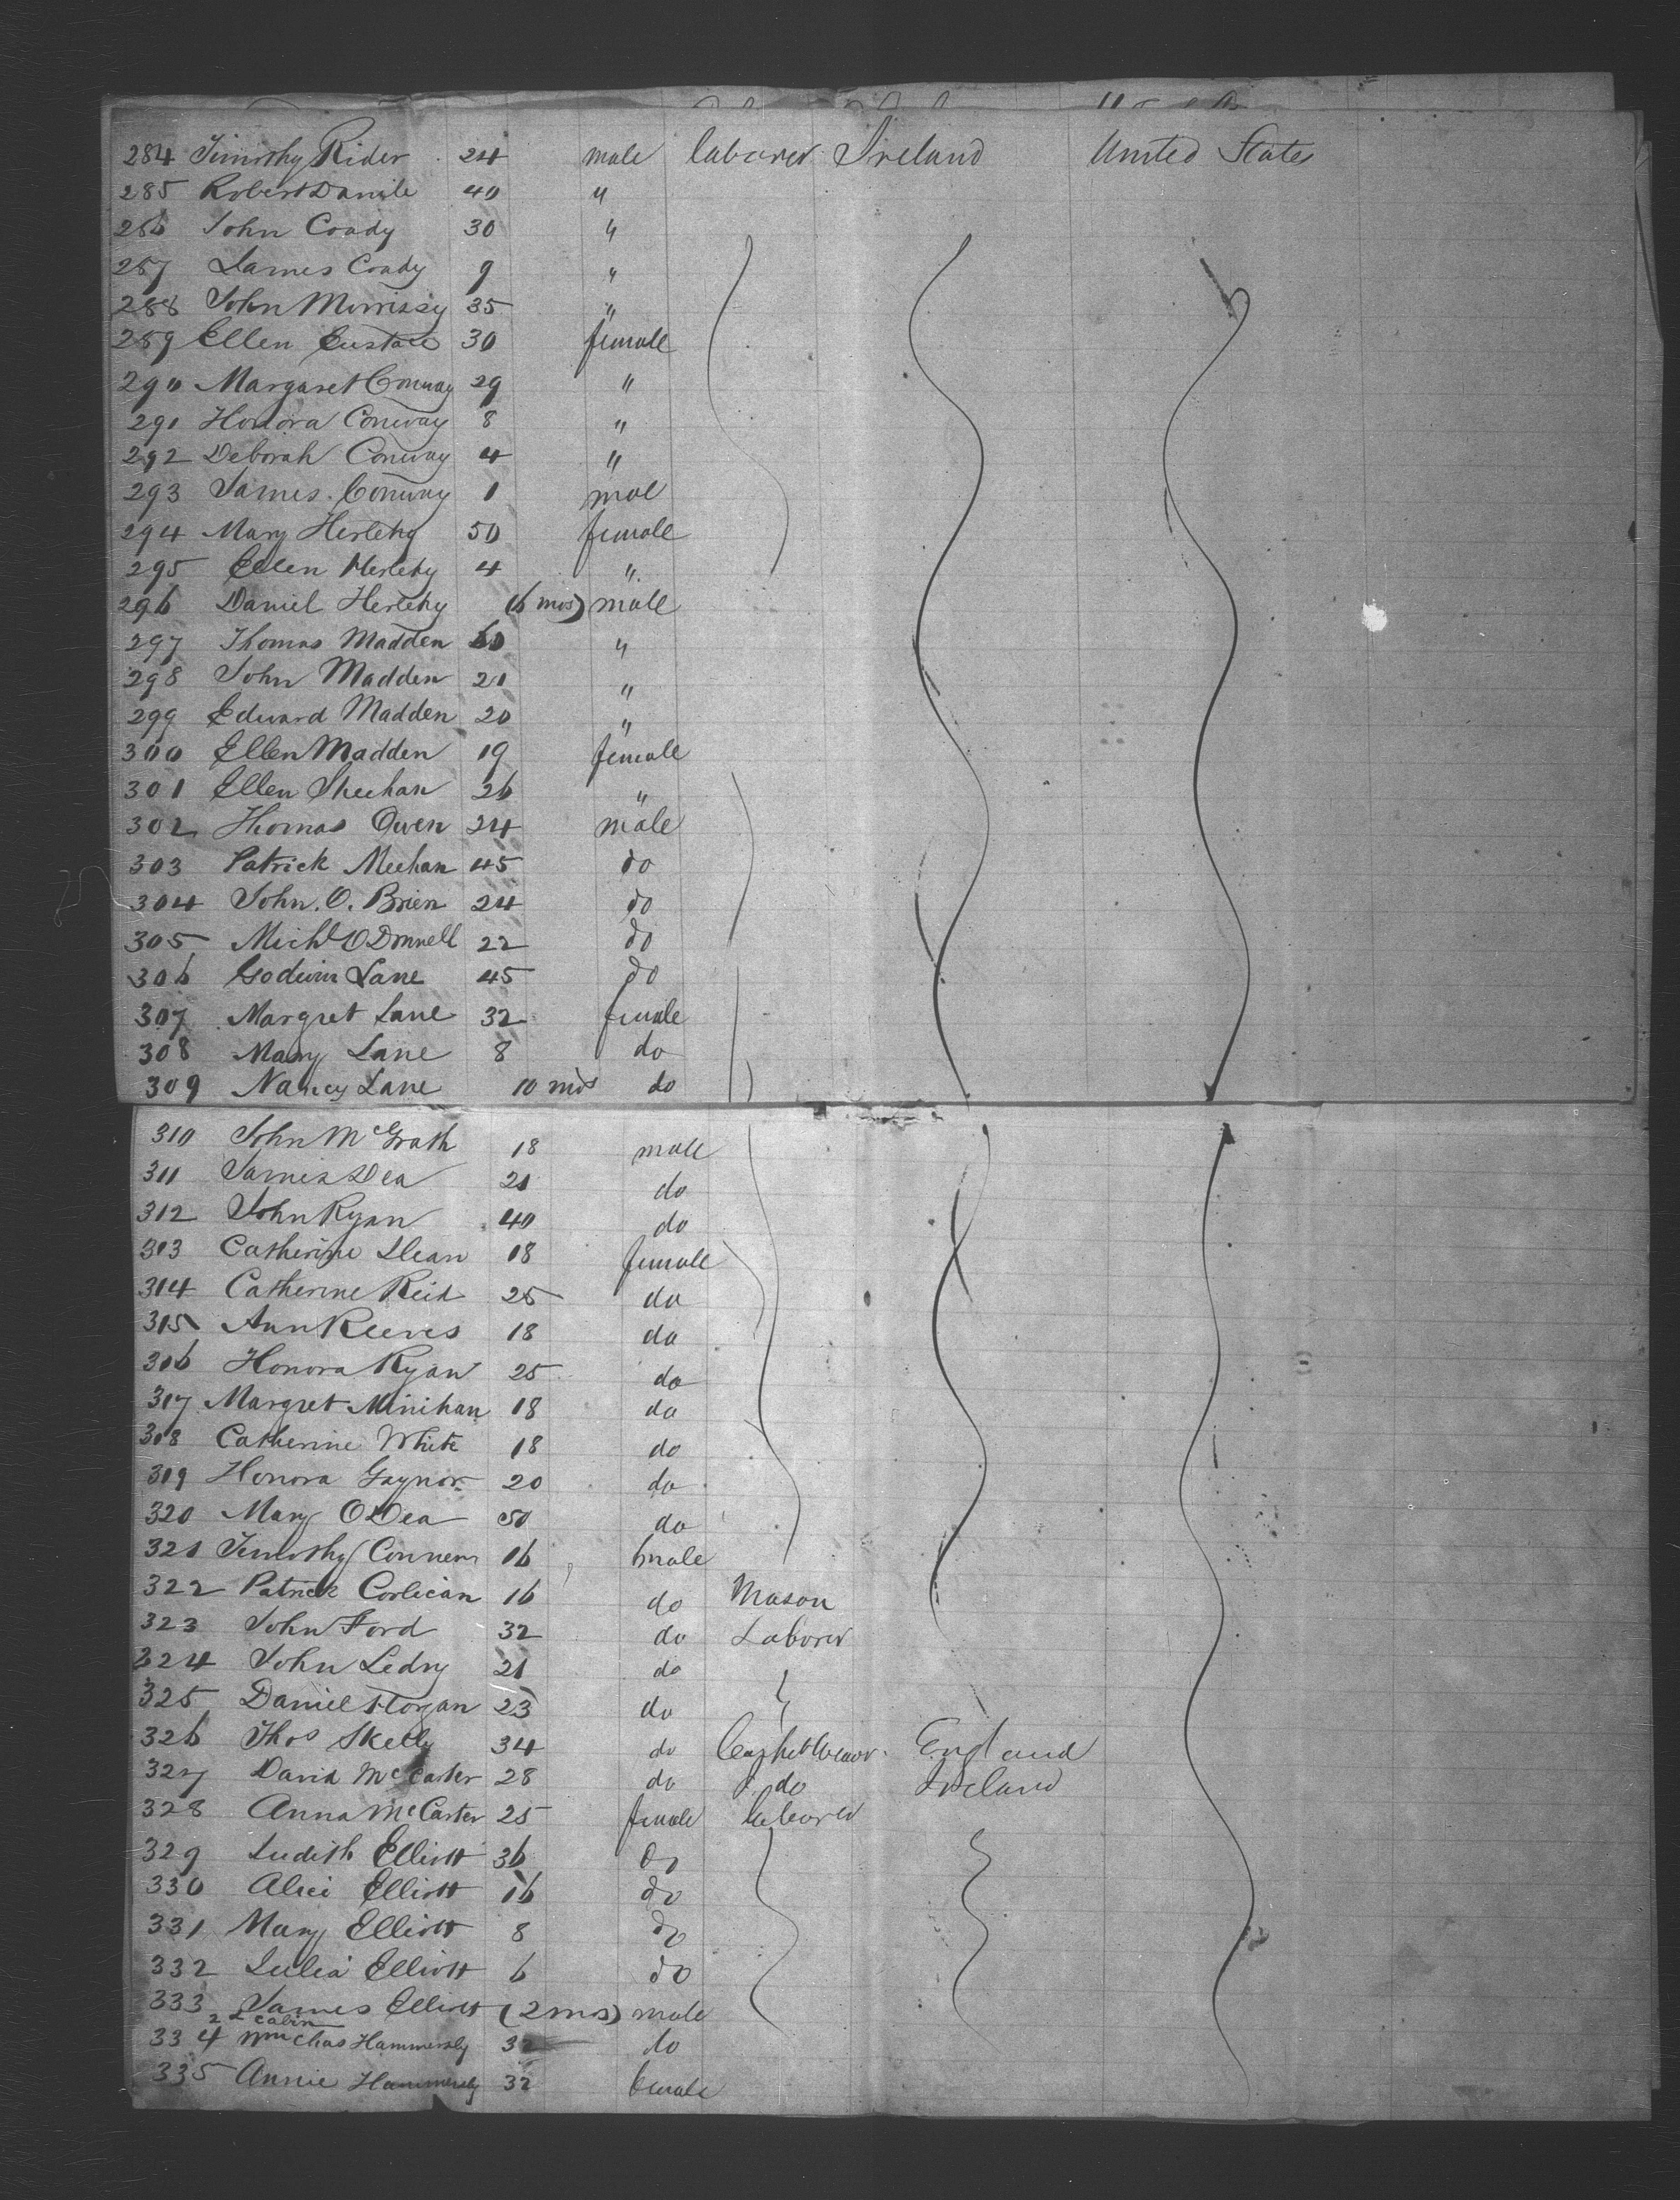 284 Timothy Rider 24 male laborer Ireland United States
285 Robert Danile 40 "
286 John Coady 30 "
287 James Coady 9 "
288 John Morrissy 35 "
289 Ellen Eustace 30 female
290 Margaret Conway 29 "
291 Honora Conway 8 "
292 Deborah Conway 4 "
293 James Conway 1 male
294 Mary Herlehy 50 female
295 Ellen Herlehy 4 "
296 Daniel Herlehy (6 mos) male
297 Thomas Madden 60 "
298 John Madden 21 "
299 Edward Madden 20 "
300 Ellen Madden 19 female
301 Ellen Sheehan 26 "
302 Thomas Owen 24 male
303 Patrick Meehan 45 do
304 John O. Brien 24 do
305 Michl O Donnell 22 do
306 Godwin Lane 45 do
307 Margret Lane 32 female
308 Mary Lane 8 do
309 Nancy Lane 10 mos do
310 John McGrath 18 male
311 James Dea 21 do
312 John Ryan 40 do
313 Catherine Dean 18 female
314 Catherine Reid 25 do
315 Ann Reeves 18 do
316 Honora Ryan 25 do
317 Margret Minihan 18 do
318 Catherine White 18 do
319 Honora Gaynor 20 do
320 Mary O Dea 50 do
321 Timothy Conners 16 male
322 Patrick Corlican 16 do Mason
323 John Ford 32 do Laborer
324 John Ledry 21 do
325 Daniel Horgan 23 do
326 Thos Skelly 34 do Carpet Weaver England
327 David McCarter 28 do do Ireland
328 Anna McCarter 25 female laborer
329 Judith Elliott 36 do
330 Alice Elliott 16 do
331 Mary Elliott 8 do
332 Julia Elliott 6 do
333 James Elliott (2 mos) male
2d cabin
334 Wm Chas Hammersly 32 do
335 Annie Hammersly 32 female